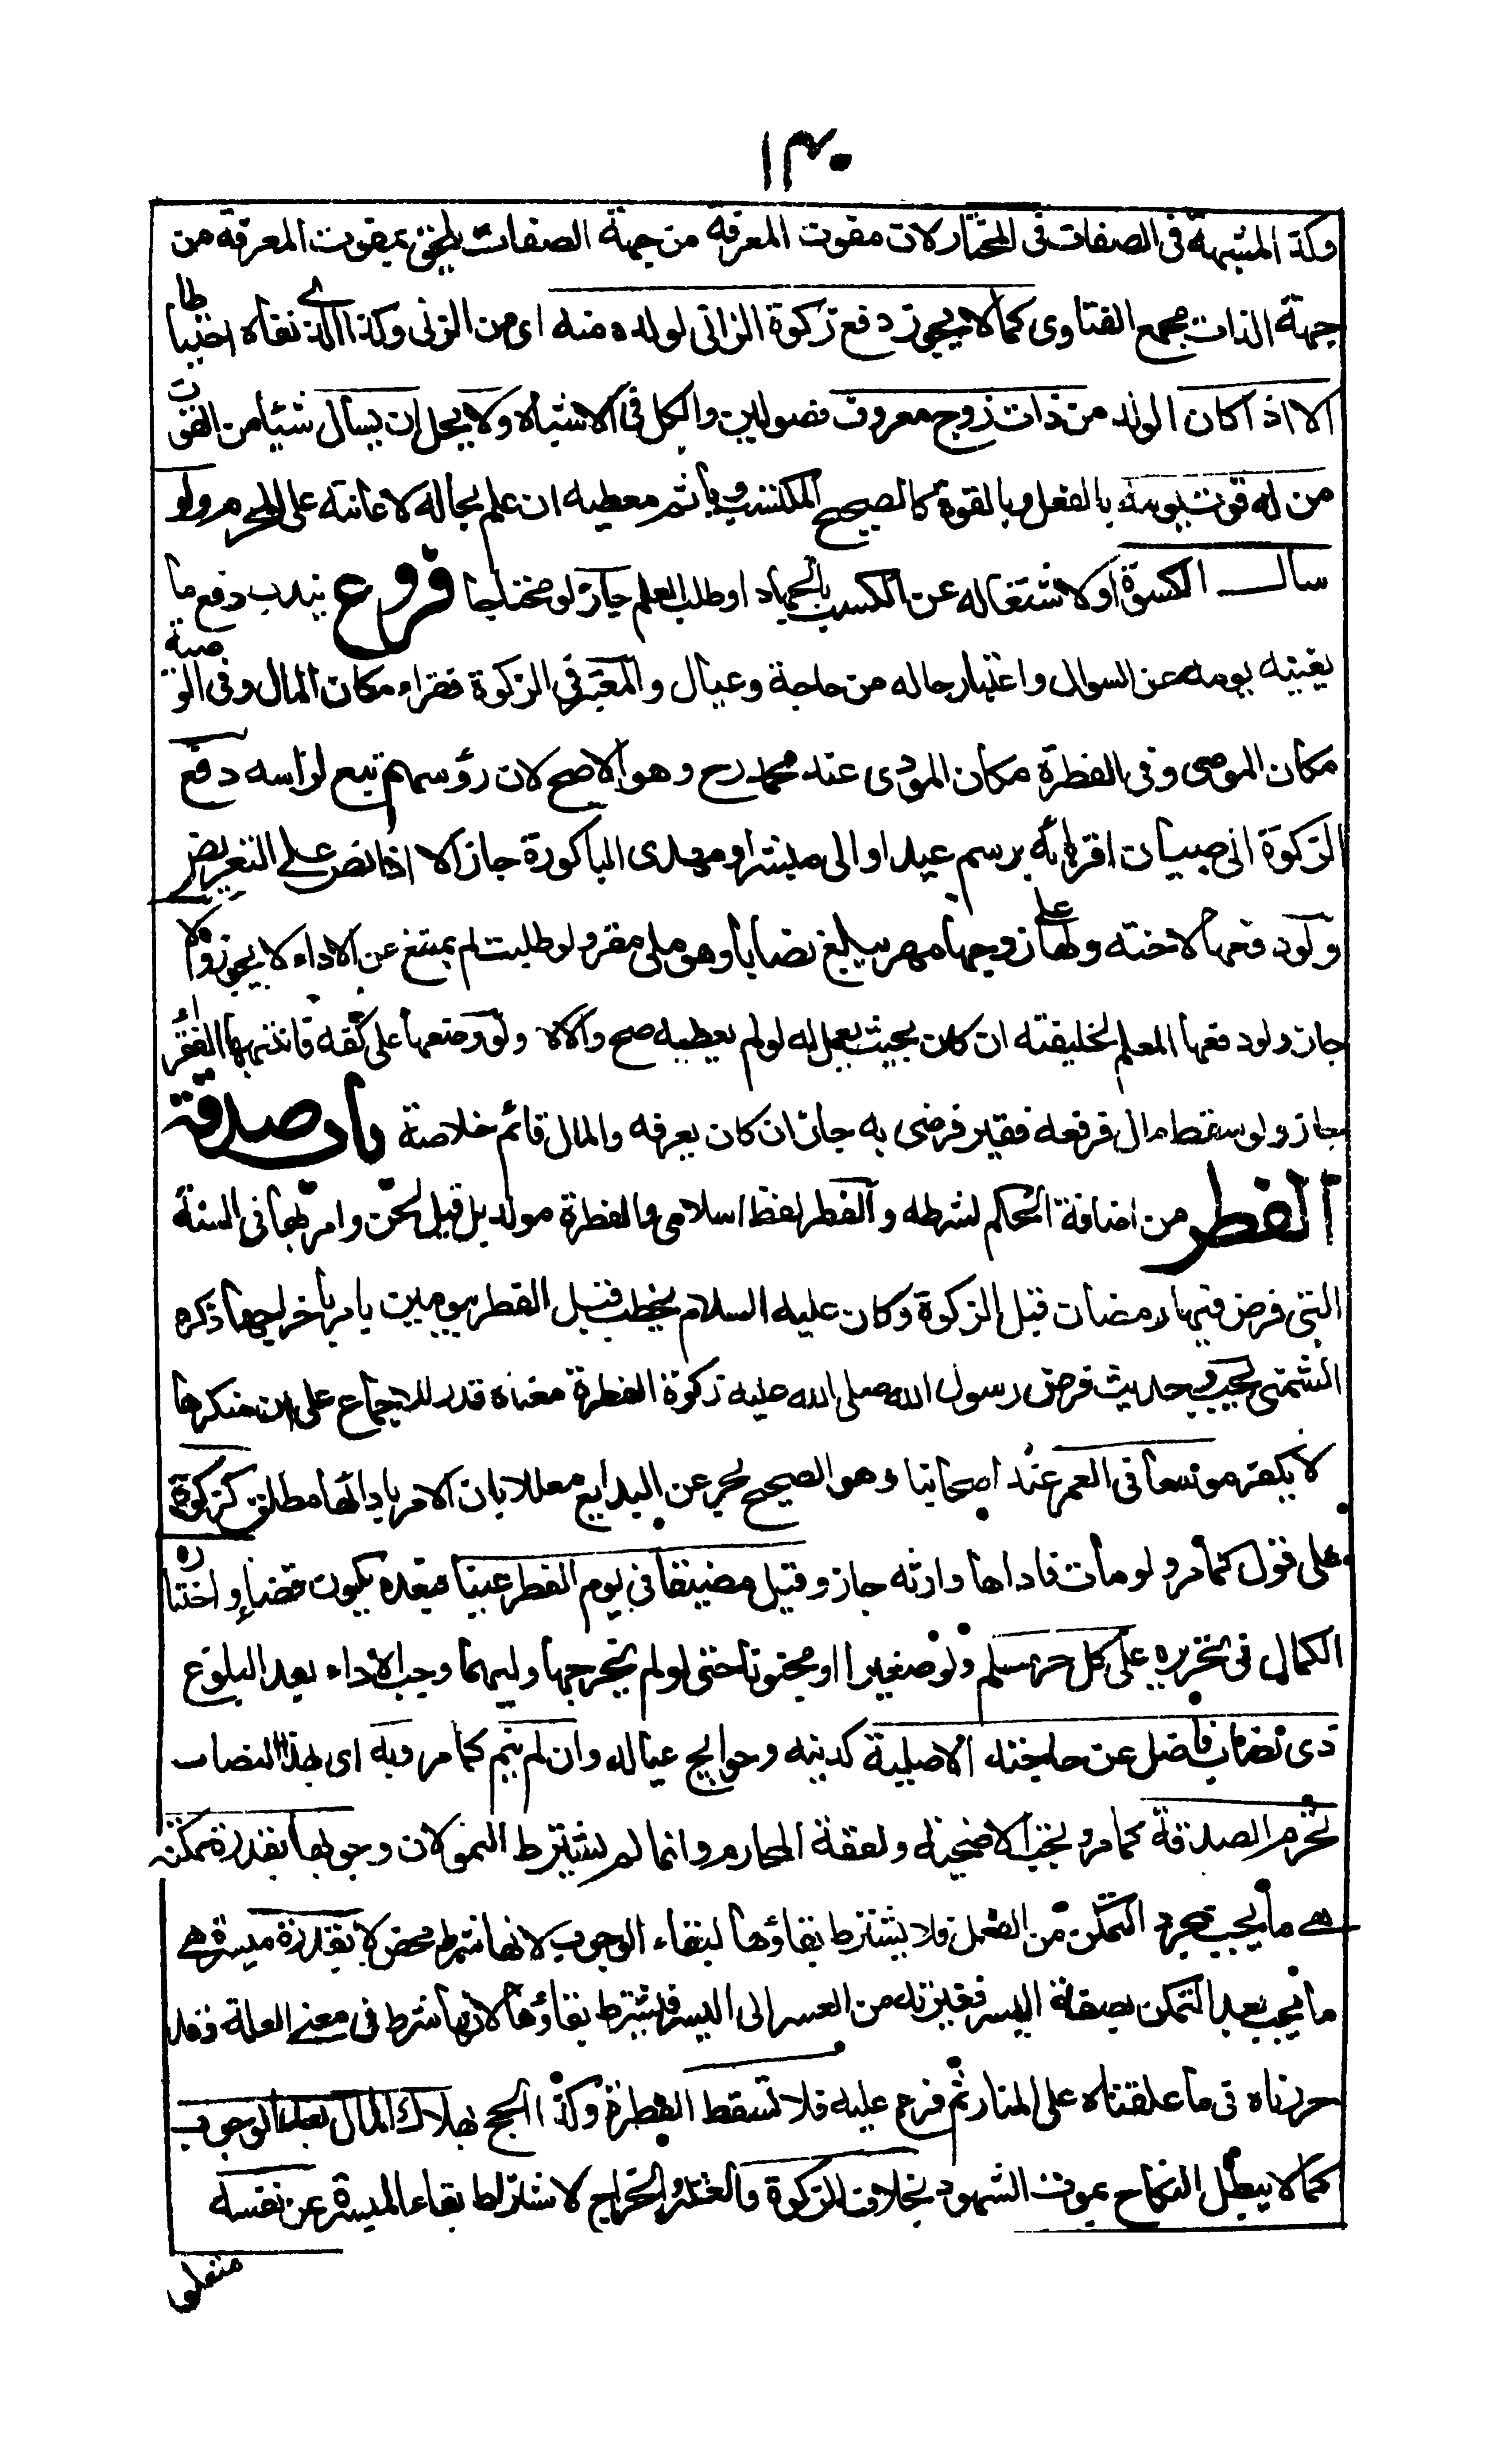 ١٣٠
وكذا المشبهة فى الصفات فى المختار لان مفوت المعرفة من جهة الصفات يلحق بمفوت المعرفة من
جهة الذات مجمع الفتاوى كما لا يجوز دفع زكوة الزانى لولده منه اى من الزنى وكذا الذى نفاه احتياطا
الا اذا كان الولد من ذات زوج معروف فصولين والكل فى الاشباه ولا يحل ان يسأل شيئا من القوت
من له قوت يومه بالفعل او بالقوة كالصحيح المكتسب ويأثم معطيه ان علم بحاله لاعانته على المحرم ولو
سال الكسوة او لاشتغاله عن الكسب بالجهاد او طلب العلم جاز لو محتاجا فروع يندب دفع ما
يغنيه يومه عن السوال واعتبار حاله من حاجة وعيال والمعتبر فى الزكوة فقراء مكان المال وفى الوصية
مكان الموصى وفى الفطرة مكان المودى عند محمد رح وهو الاصح لان رؤسهم تبع لراسه دفع
الزكوة الى صبيان اقربائه برسم عيد او الى مبشر او مهدى الباكورة جاز الا اذا نص على التعويض
ولو دفعها لاخته ولها على زوجها مهر يبلغ نصابا وهو ملى مقر ولو طلبت لم يمتنع عن الاداء لا يجوز والا
جاز ولو دفعها المعلم لخليفته ان كان بحيث يعمل له لو لم يعطيه صح والا لا ولو وضعها على كفه فانتهبها الفقراء
جاز ولو سقط مال فرفعه فقير فرضى به جاز ان كان يعرفه والمال قائم خلاصة باب صدقة
الفطر من اضافة الحكم لشرطه والفطر لفظ اسلامى والفطرة مولد بل قيل لحن وامر بها فى السنة
التى فرض فيها رمضان قبل الزكوة وكان عليه السلام يخطب قبل الفطر بيومين يامر باخراجها ذكره
الشمنى تجب وحديث فرض رسول الله صلى الله عليه زكوة الفطرة معناه قدر للاجماع على ان منكرها
لا يكفر موسعا فى العمر عند اصحابنا وهو الصحيح بحر عن البدايع معللا بان الامر بادائها مطلق كزكوة
على قول كما مر ولو مات فاداها وارثه جاز وقيل مضيقا فى يوم الفطر عينا فبعده يكون قضاء واختاره
الكمال فى تحريره على كل حر مسلم ولو صغيرا او مجنونا حتى لو لم يخرجها وليهما وجب الاداء بعد البلوغ
ذى نصاب فاضل عن حاجته الاصلية كدينه وحوايج عياله وان لم ينم كما مر وبه اى بهذا النصاب
تحرم الصدقة كما مر وتجب الاضحية ونفقة المحارم وانما لم يشترط النمو لان وجوبها بقدرة ممكنه
هے ما يجب بمجرد التمكن من الفعل فلا يشترط بقاؤها لبقاء الوجوب لانها شرط محض لا بقدرة ميسرة هے
ما يجب بعد التمكن بصفة اليسر فغيرته من العسر الى اليسر فيشترط بقاؤها لانها شرط فى معنى العلة وقد
حررناه فى ما علقناه على المنار ثم فرع عليه فلا تسقط الفطرة وكذا الحج بهلاك المال بعد الوجوب
كما لا يبطل النكاح بموت الشهود بخلاف الزكوة والعشر والخراج لاشتراط بقاء الميسرة عن نفسه
متعلق